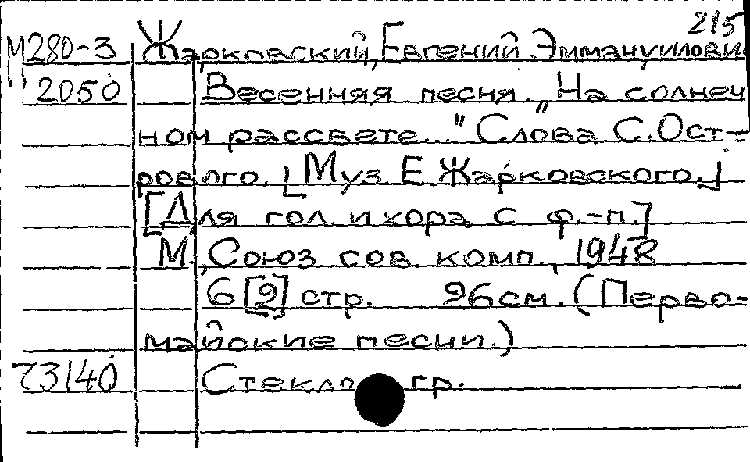 215
М280-3 Жарковский, Евгений Эммануилович
2050 Весенняя песня. „На солнеч
ном рассвете..." Слова С. Ост-
рового. [Муз. Е. Жарковского.]
[Для гол. и хора с ф.-п.]
М., Союз сов. комп., 1948
6 [2] стр. 26 см. (Перво-
майские песни.)
73140 Стекло гр.